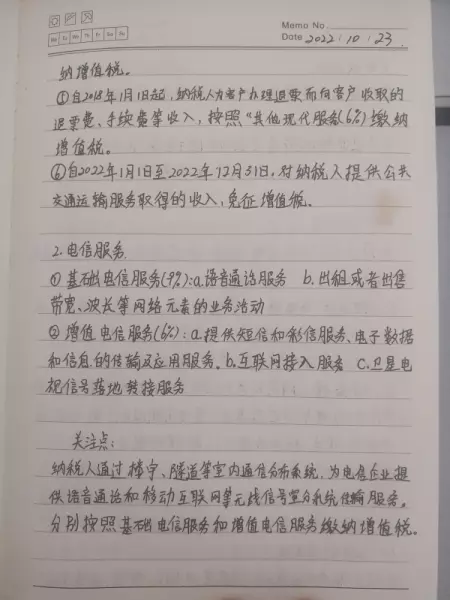 Memo No.
Mo Tu We Th Fr Sa Su
Date 2022.10.23.
纳增值税。
①自2018年1月1日起,纳税人为客户办理退票而向客户收取的
退票费、手续费等收入,按照“其他现代服务(6%)缴纳
增值税。
⑥自2022年1月1日至2022年12月31日,对纳税人提供公共
交通运输服务取得的收入,免征增值税。
2.电信服务
①基础电信服务(9%):a.语音通话服务 b.出租或者出售
带宽、波长等网络元素的业务活动
②增值电信服务(6%):a.提供短信和彩信服务、电子数据
和信息的传输及应用服务。b.互联网接入服务 c.卫星电
视信号落地转接服务
关注点:
纳税人通过楼宇、隧道等室内通信分布系统,为电信企业提
供语音通话和移动互联网等无线信号室分系统传输服务。
分别按照基础电信服务和增值电信服务缴纳增值税。